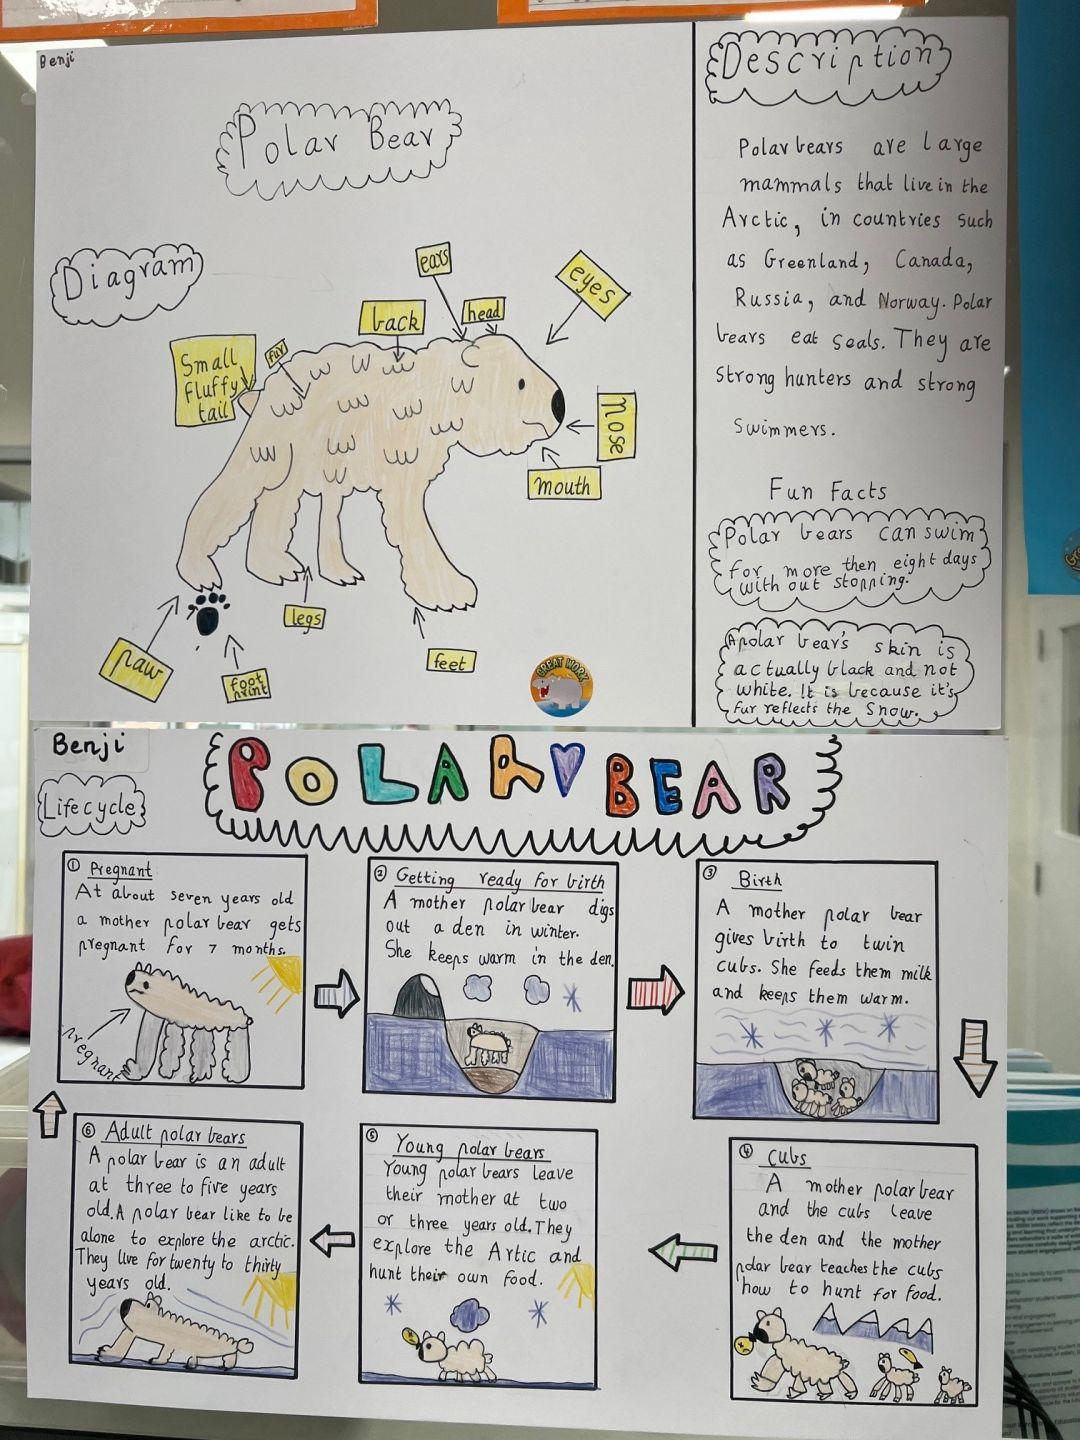 Benji
Polar Bear
Diagram
ears
eyes
head
back
fur
Small
fluffy
tail
Nose
mouth
legs
feet
paw
foot
print
GREAT WORK
Description
Polar bears are large
mammals that live in the
Arctic, in countries such
as Greenland, Canada,
Russia, and Norway. Polar
bears eat seals. They are
strong hunters and strong
swimmers.
Fun Facts
Polar bears can swim
for more then eight days
with out stopping.
A polar bear's skin is
actually black and not
white. It is because it's
fur reflects the snow.
Benji
POLAR BEAR
Life cycle
① Pregnant
At about seven years old
a mother polar bear gets
pregnant for 7 months.
pregnant
② Getting ready for birth
A mother polar bear digs
out a den in winter.
She keeps warm in the den.
③ Birth
A mother polar bear
gives birth to twin
cubs. She feeds them milk
and keeps them warm.
④ Cubs
A mother polar bear
and the cubs leave
the den and the mother
polar bear teaches the cubs
how to hunt for food.
⑤ Young polar bears
Young polar bears leave
their mother at two
or three years old. They
explore the Artic and
hunt their own food.
⑥ Adult polar bears
A polar bear is an adult
at three to five years
old. A polar bear like to be
alone to explore the arctic.
They live for twenty to thirty
years old.